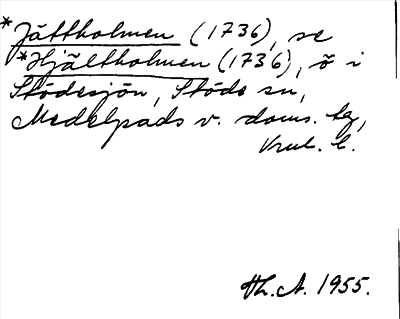 *Jättholmen (1736), se
*Hjältholmen (1736), ö i
Stödesjön, Stöde sn,
Medelpads v. doms. tg,
Vnrl. l.
Hh.A. 1955.